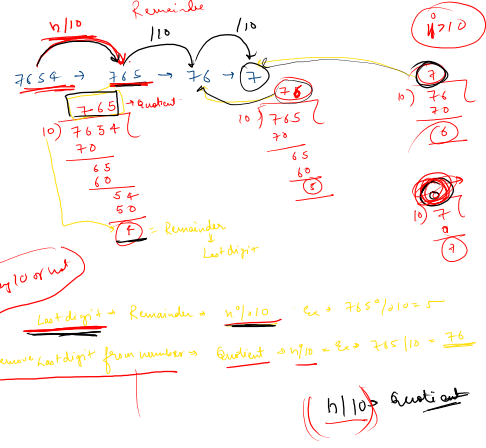 Remainder
n/10 /10 /10
n%10
7654 → 765 → 76 → 7
765 → Quotient
10) 7654
70
65
60
54
50
4 = Remainder
Last digit
76
10) 765
70
65
60
5
7
10) 76
70
6
0
10) 7
0
7
10 or not
Last digit → Remainder → n%10 Ex → 765%10 = 5
Remove Last digit from number → Quotient → n/10 = Ex → 765/10 = 76
n/10 → Quotient